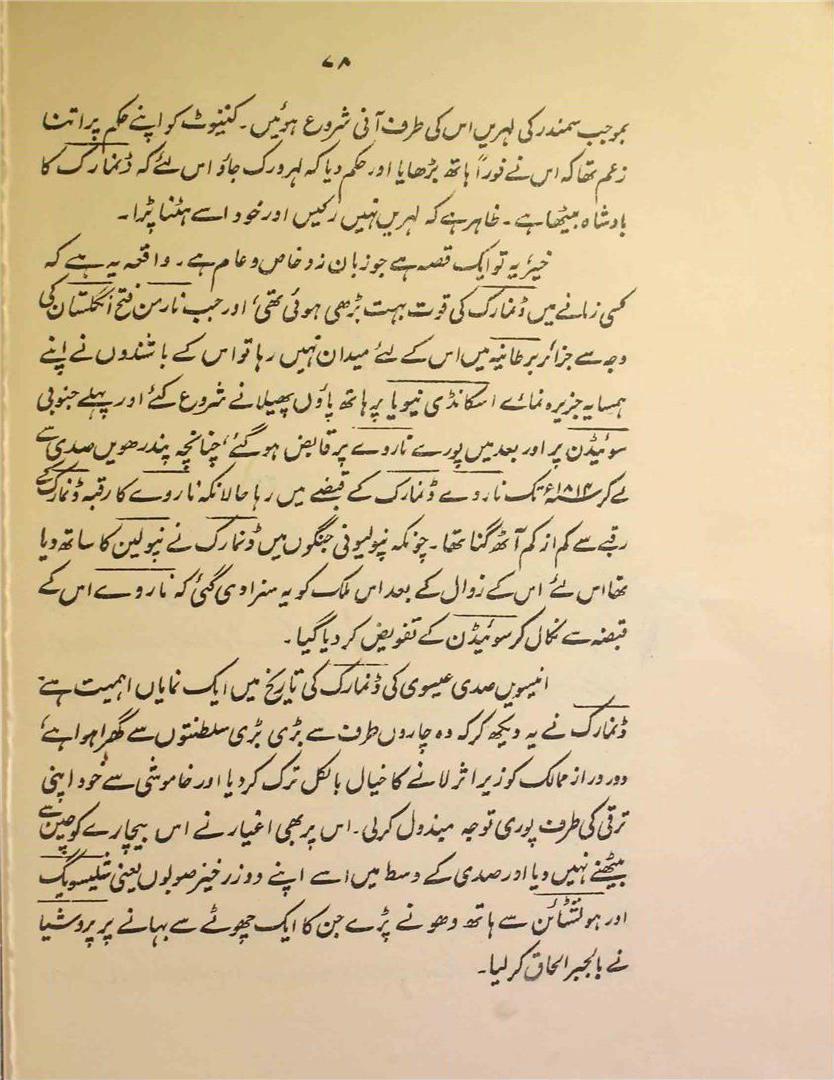 ۷۸
بموجب سمندر کی لہریں اس کی طرف آنی شروع ہوئیں۔ کنیوٹ کو اپنے حکم پر اتنا
زعم تھا کہ اس نے فوراً ہاتھ بڑھایا اور حکم دیا کہ لہرو رک جاؤ اس لئے کہ ڈنمارک کا
بادشاہ بیٹھا ہے۔ ظاہر ہے کہ لہریں نہیں رکیں اور خود اسے ہٹنا پڑا۔
خیر یہ تو ایک قصہ ہے جو زبان زد خاص و عام ہے۔ واقعہ یہ ہے کہ
کسی زمانے میں ڈنمارک کی قوت بہت بڑھی ہوئی تھی، اور جب نارمن فتح انگلستان کی
وجہ سے جزائر برطانیہ میں اس کے لئے میدان نہیں رہا تو اس کے باشندوں نے اپنے
ہمسایہ جزیرہ نمائے اسکانڈی نیویا پر ہاتھ پاؤں پھیلانے شروع کئے اور پہلے جنوبی
سوئیڈن پر اور بعد میں پورے ناروے پر قابض ہو گئے، چنانچہ پندرھویں صدی سے
لے کر ۱۸۱۴ء تک ناروے ڈنمارک کے قبضے میں رہا حالانکہ ناروے کا رقبہ ڈنمارک کے
رقبے سے کم از کم آٹھ گنا تھا۔ چونکہ نپولیونی جنگوں میں ڈنمارک نے نپولین کا ساتھ دیا
تھا اس لئے اس کے زوال کے بعد اس ملک کو یہ سزا دی گئی کہ ناروے اس کے
قبضہ سے نکال کر سوئیڈن کے تفویض کر دیا گیا۔
انیسویں صدی عیسوی کی ڈنمارک کی تاریخ میں ایک نمایاں اہمیت ہے
ڈنمارک نے یہ دیکھ کر کہ وہ چاروں طرف سے بڑی بڑی سلطنتوں سے گھرا ہوا ہے،
دور دراز ممالک کو زیر اثر لانے کا خیال بالکل ترک کر دیا اور خاموشی سے خود اپنی
ترقی کی طرف پوری توجہ مبذول کر لی۔ اس پر بھی اغیار نے اس بیچارے کو چین سے
بیٹھنے نہیں دیا اور صدی کے وسط میں اسے اپنے دو زرخیز صوبوں یعنی شلیسویگ
اور ہولشٹائن سے ہاتھ دھونے پڑے جن کا ایک چھوٹے سے بہانے پر پروشیا
نے بالجبر الحاق کر لیا۔